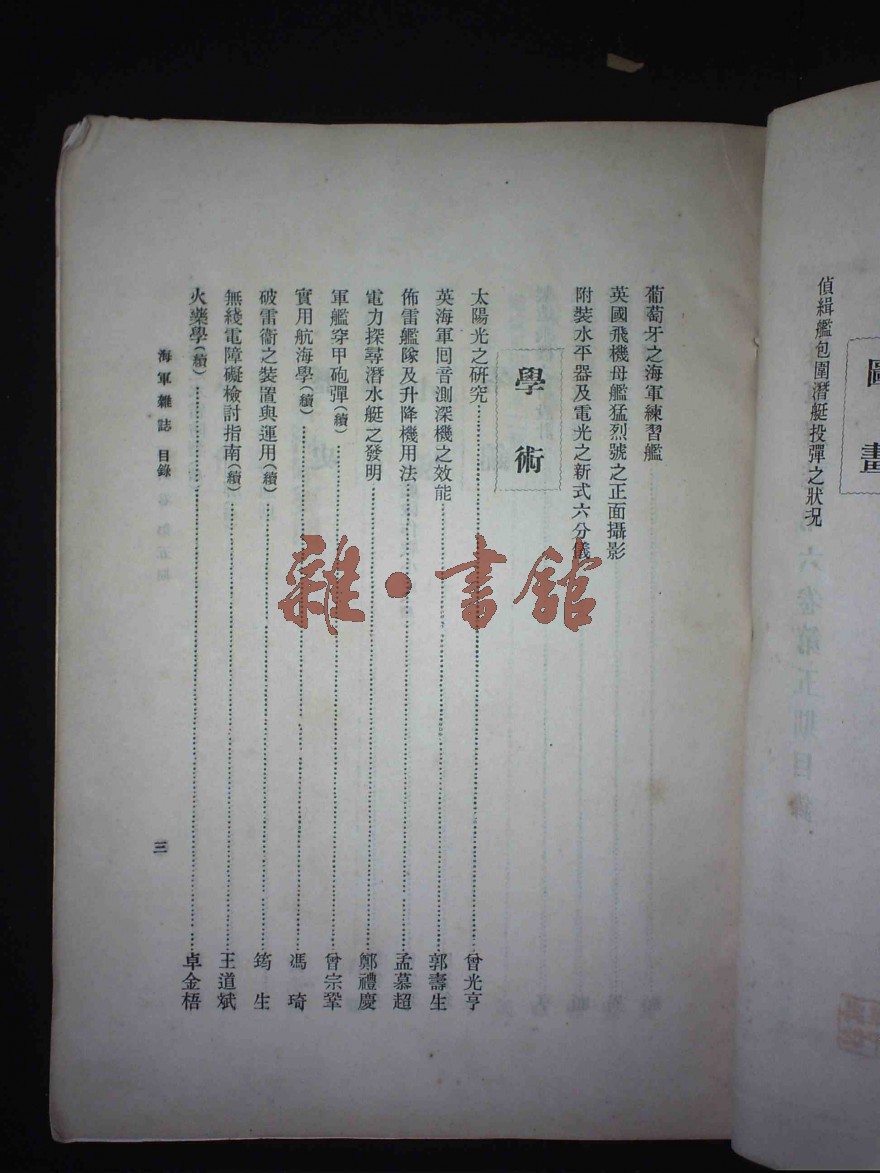 圖畫
偵緝艦包圍潛艇投彈之狀况
葡萄牙之海軍練習艦
英國飛機母艦猛烈號之正面攝影
附裝水平器及電光之新式六分儀
學術
太陽光之研究⋯⋯⋯⋯曾光亨
英海軍囘音測深機之效能⋯⋯⋯⋯郭壽生
佈雷艦隊及升降機用法⋯⋯⋯⋯孟慕超
電力探尋潛水艇之發明⋯⋯⋯⋯鄭禮慶
軍艦穿甲砲彈(續)⋯⋯⋯⋯曾宗鞏
實用航海學(續)⋯⋯⋯⋯馮琦
破雷衞之裝置與運用(續)⋯⋯⋯⋯筠生
無綫電障礙檢討指南(續)⋯⋯⋯⋯王道斌
火藥學(續)⋯⋯⋯⋯卓金梧
海軍雜誌 目錄
三
雜·書館